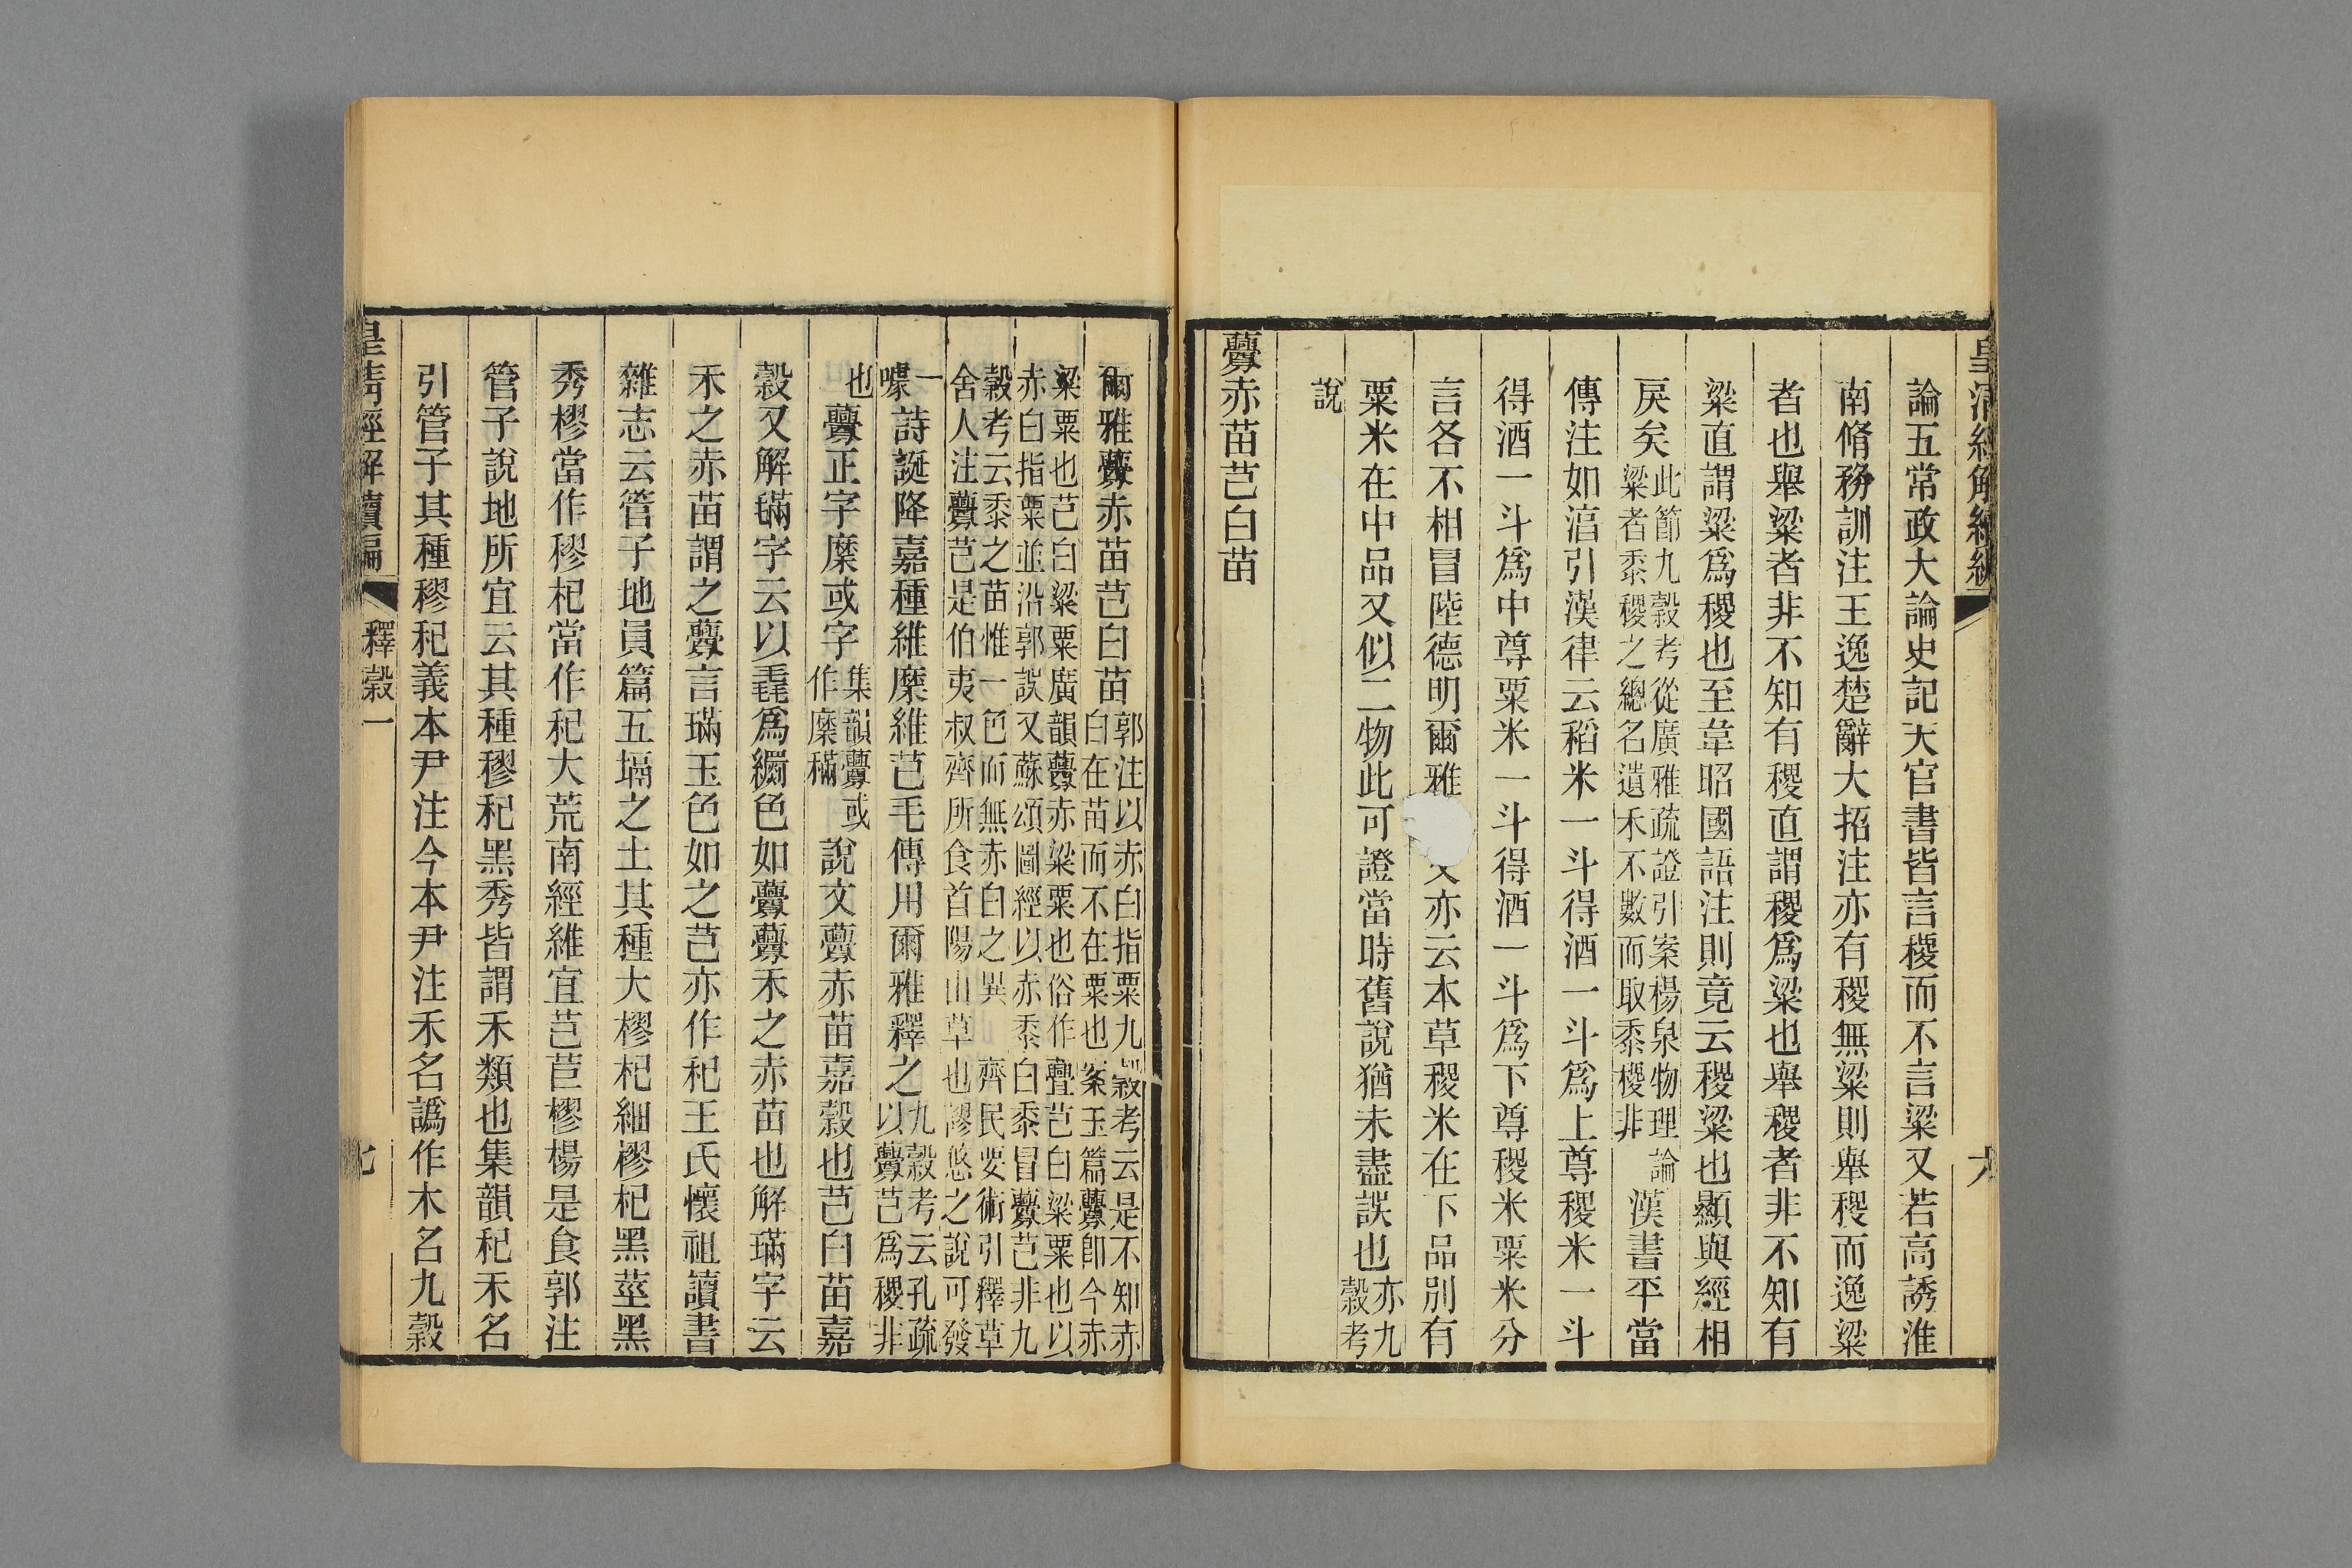 論五常政大論史記天官書皆言稷而不言粱又若高誘淮
南脩務訓注王逸楚辭大招注亦有稷無粱則舉稷而逸粱
者也舉粱者非不知有稷直謂稷爲粱也舉稷者非不知有
粱直謂粱爲稷也至韋昭國語注則竟云稷粱也顯與經相
戻矣此節九穀考從廣雅疏證引案楊泉物理論
粱者黍稷之總名遺禾不數而取黍稷非漢書平當
傳注如湻引漢律云稻米一斗得酒一斗爲上尊稷米一斗
得酒一斗爲中尊粟米一斗得酒一斗爲下尊稷米粟米分
言各不相冒陸德明爾雅亦云本草稷米在下品別有
粟米在中品又似二物此可證當時舊說猶未盡誤也亦九
穀考
說
虋赤苗芑白苗
爾雅虋赤苗芑白苗郭注以赤白指粟九穀考云是不知赤
白在苗而不在粟也案玉篇虋卽今赤
粱粟也芑白粱粟廣韻虋赤粱粟也俗作亹芑白粱粟也以
赤白指粟並沿郭誤又蘇頌圖經以赤黍白黍冒虋芑非九
穀考云黍之苗惟一色而無赤白之異齊民要術引釋草
舍人注虋芑是伯夷叔齊所食首陽山草也謬悠之說可發
一
噱詩誕降嘉種維穈維芑毛傳用爾雅釋之九穀考云孔疏
以虋芑爲稷非
也虋正字穈或字集韻虋或
作穈𥡷說文虋赤苗嘉穀也芑白苗嘉
穀又解𣯩字云以毳爲繝色如虋虋禾之赤苗也解璊字云
禾之赤苗謂之虋言璊玉色如之芑亦作䅎王氏懷祖讀書
雜志云管子地員篇五塥之土其種大樛杞細樛杞黑莖黑
秀樛當作穋杞當作䅎大荒南經維宜芑苣樛楊是食郭注
管子說地所宜云其種穋䅎黑秀皆謂禾類也集韻䅎禾名
引管子其種穋䅎義本尹注今本尹注禾名譌作木名九穀
釋穀一